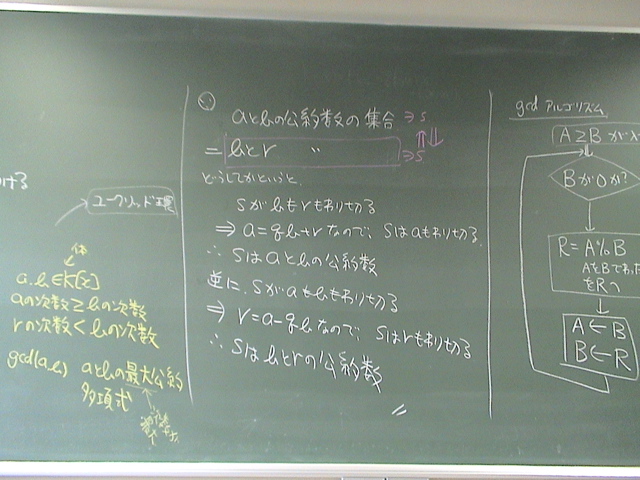 n+3
ユークリッド工
体
a,b∈K[x]
aの次数≧bの次数
rの次数<bの次数
gcd(a,b) aとbの最大公約
多項式
aとbの公約数の集合∋s
= bとr 〃 ∋s
どうしてかというと、
sがbもrもわり切る
⇒ a=qb+rなので、sはaもわり切る.
∴ sはaとbの公約数
逆に、sがaもbもわり切る
⇒ r=a-qbなので、sはrもわり切る
∴ sはbとrの公約数
gcd アルゴリズム
A≧B が入
Bが0か?
R=A%B
AをBでわった
をRへ
A←B
B←R